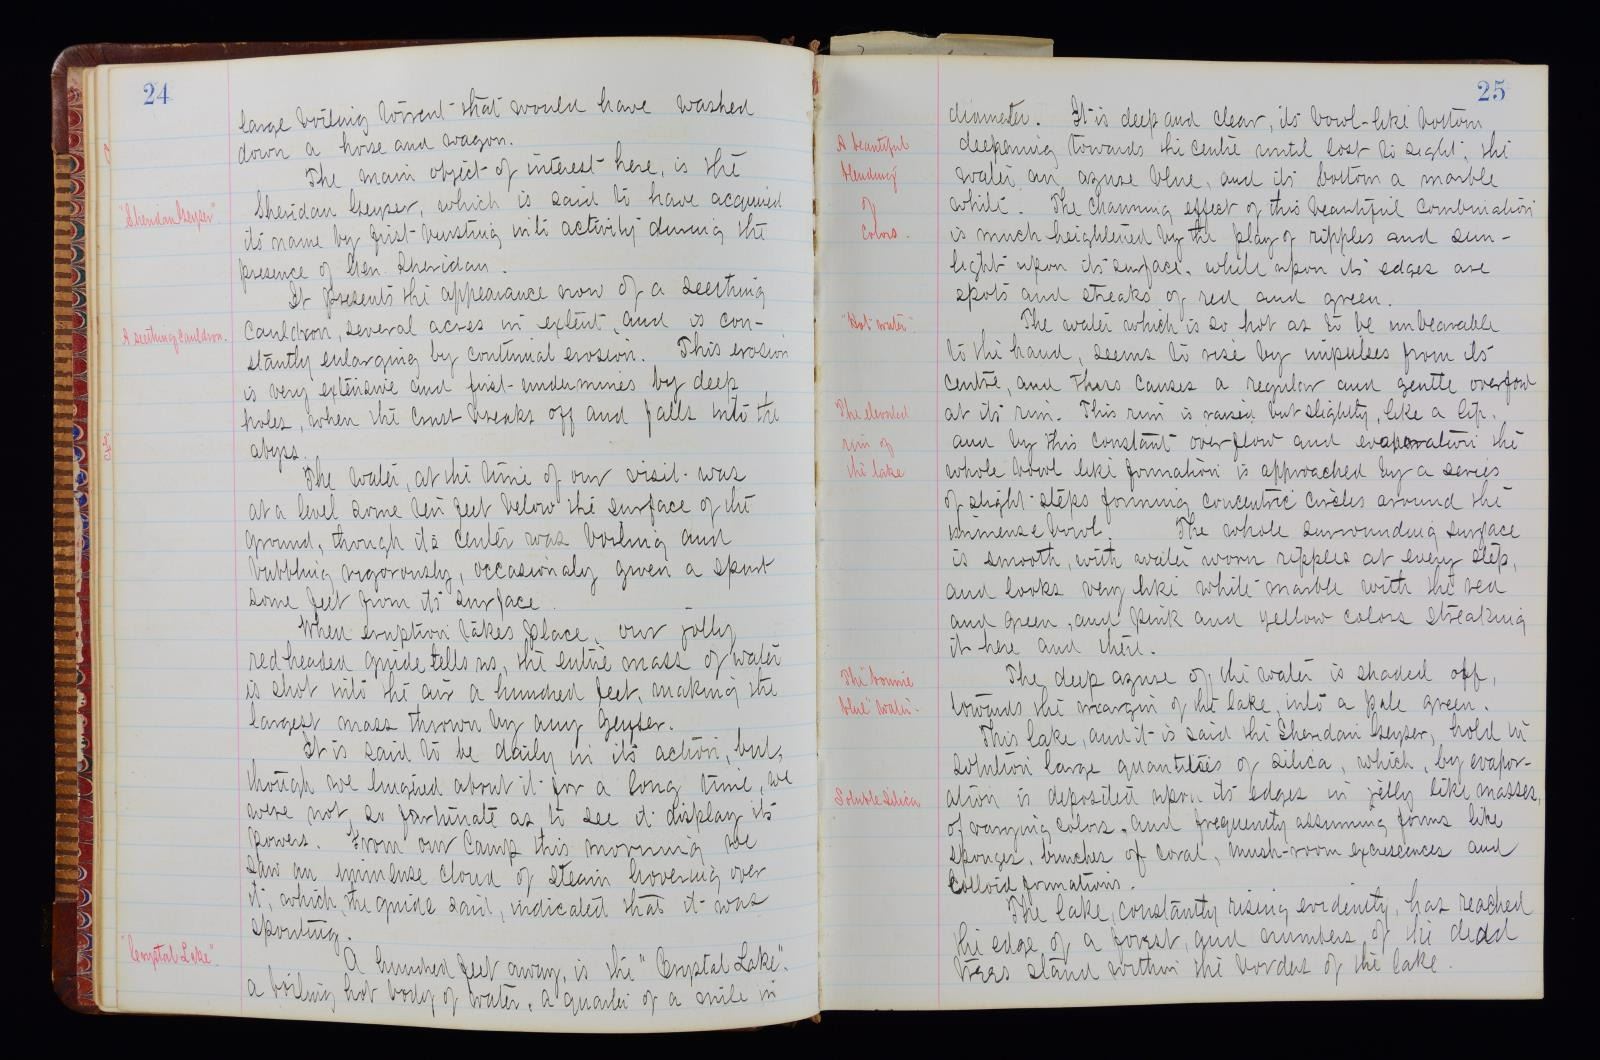 24
large boiling torrent that would have washed
down a horse and wagon.
The main object of interest here, is the
"Sheridan Geyser"
Sheridan Geyser, which is said to have acquired
its name by first bursting into activity during the
presence of Gen. Sheridan.
It presents the appearance now of a seething
A seething Cauldron.
Cauldron, several acres in extent, and is con-
stantly enlarging by continual erosion. This erosion
is very extensive and first undermines by deep
holes, when the crust breaks off and falls into the
abyss.
The water, at the time of our visit was
at a level some ten feet below the surface of the
ground, though its center was boiling and
bubbling vigorously, occasionaly given a spurt
some feet from its surface.
When eruption takes place, our jolly
redheaded guide tells us, the entire mass of water
is shot into the air a hundred feet, making the
largest mass thrown by any Geyser.
It is said to be daily in its action, but,
though we lingered about it for a long time, we
were not so fortunate as to see it display its
powers. From our Camp this morning we
saw an immense cloud of steam hovering over
it, which, the guide said, indicated that it was
spouting.
"Crystal Lake".
A hundred feet away, is the "Crystal Lake".
a boiling hot body of water, a quarter of a mile in
25
diameter. It is deep and clear, its bowl-like bottom
A beautiful
blending
of
colors.
deepening towards the centre until lost to sight; the
water an azure blue, and its bottom a marble
white. The charming effect of this beautiful combination
is much heightened by the play of ripples and sun-
light upon its surface. while upon its edges are
spots and streaks of red and green.
"Hot water".
The water which is so hot as to be unbearable
to the hand, seems to rise by impulses from its
centre, and thus causes a regular and gentle overflow
The elevated
rim of
the lake
at its rim. This rim is raised but slightly, like a lip.
and by this constant overflow and evaporation the
whole bowl like formation is approached by a series
of slight steps forming concentric circles around the
immense bowl. The whole surrounding surface
is smooth, with water worn ripples at every step,
and looks very like white marble with the red
and green, and pink and yellow colors streaking
it here and there.
The "bonnie
blue" water.
The deep azure of the water is shaded off,
towards the margin of the lake, into a pale green.
This lake, and it is said the Sheridan Geyser, hold in
solution large quantities of silica, which, by evapor-
Soluble Silica
ation is deposited upon its edges in jelly like masses,
of varying colors. and frequently assuming forms like
sponges, bunches of coral, mush-room excrescences and
Colloid formations.
The lake, constantly rising evidently, has reached
the edge of a forest, and numbers of the dead
trees stand within the borders of the lake.